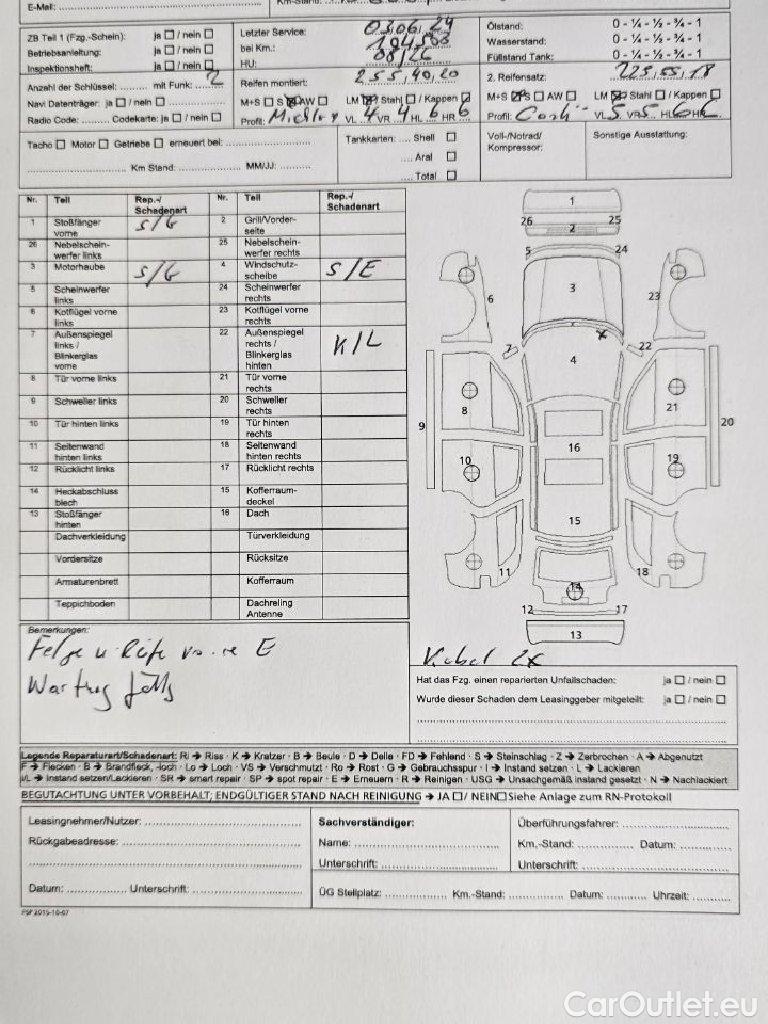 E-Mail:
ZB Teil 1 (Fzg.-Schein): ja / nein
Betriebsanleitung: ja / nein
Inspektionsheft: ja / nein
Letzter Service: 0306,24
bei Km.:
HU:
Ölstand: 0 - ¼ - ½ - ¾ - 1
Wasserstand: 0 - ¼ - ½ - ¾ - 1
Füllstand Tank: 0 - ¼ - ½ - ¾ - 1
Anzahl der Schlüssel: mit Funk: 2
Navi Datenträger: ja / nein
Radio Code: Codekarte: ja / nein
Reifen montiert: 255,40,20
M+S S AW LM Stahl / Kappen
Profil: VL 4 VR 4 HL 6 HR 6
2. Reifensatz: 225,55,18
M+S S AW LM Stahl / Kappen
Profil: VL 5 VR 5 HL 6 HR 6
Tacho Motor Getriebe erneuert bei:
Km Stand: MM/JJ:
Tankkarten: Shell
Aral
Total
Voll-/Notrad/
Kompressor:
Sonstige Ausstattung:
Nr. Teil Rep.-/ Schadenart Nr. Teil Rep.-/ Schadenart
1 Stoßfänger vorne S/G 2 Grill/Vorder-seite
26 Nebelschein-werfer links 25 Nebelschein-werfer rechts
3 Motorhaube S/G 4 Windschutz-scheibe S/E
5 Scheinwerfer links 24 Scheinwerfer rechts
6 Kotflügel vorne links 23 Kotflügel vorne rechts
7 Außenspiegel links / Blinkerglas vorne 22 Außenspiegel rechts / Blinkerglas hinten K/L
8 Tür vorne links 21 Tür vorne rechts
9 Schweller links 20 Schweller rechts
10 Tür hinten links 19 Tür hinten rechts
11 Seitenwand hinten links 18 Seitenwand hinten rechts
12 Rücklicht links 17 Rücklicht rechts
14 Heckabschluss blech 15 Kofferraum-deckel
13 Stoßfänger hinten 16 Dach
Dachverkleidung Türverkleidung
Vordersitze Rücksitze
Armaturenbrett Kofferraum
Teppichboden Dachreling Antenne
1
26 2 25
5 24
3
6 23
7 22
4
8 21
9 20
16
10 19
15
11 18
14
12 17
13
Bemerkungen:
Felge u. Reife vorne E
Wartung fällig
Kabel 2x
Hat das Fzg. einen reparierten Unfallschaden: ja / nein
Wurde dieser Schaden dem Leasinggeber mitgeteilt: ja / nein
Legende Reparaturart/Schadenart: Ri → Riss · K → Kratzer · B → Beule · D → Delle · FD → Fehlend · S → Steinschlag · Z → Zerbrochen · A → Abgenutzt
F → Flecken · B → Brandfleck, -loch · Lo → Loch · VS → Verschmutzt · Ro → Rost · G → Gebrauchsspur · I → Instand setzen · L → Lackieren
I/L → Instand setzen/Lackieren · SR → smart repair · SP → spot repair · E → Erneuern · R → Reinigen · USG → Unsachgemäß instand gesetzt · N → Nachlackiert
BEGUTACHTUNG UNTER VORBEHALT; ENDGÜLTIGER STAND NACH REINIGUNG → JA / NEIN Siehe Anlage zum RN-Protokoll
Leasingnehmer/Nutzer:
Rückgabeadresse:
Datum: Unterschrift:
Sachverständiger:
Name:
Unterschrift:
Überführungsfahrer:
Km.-Stand: Datum:
Unterschrift:
ÜG Stellplatz: Km.-Stand: Datum: Uhrzeit:
CarOutlet.eu